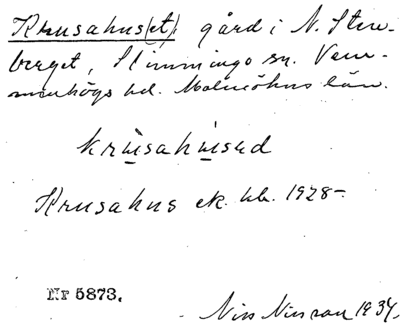 Krusahus(et), gård i N. Sten-
berget, Slimminge sn. Vem-
menhögs hd. Malmöhus län.
krusahused
Krusahus ek. kb. 1928-
Nr 5873.
Nils Nilsson 1934.